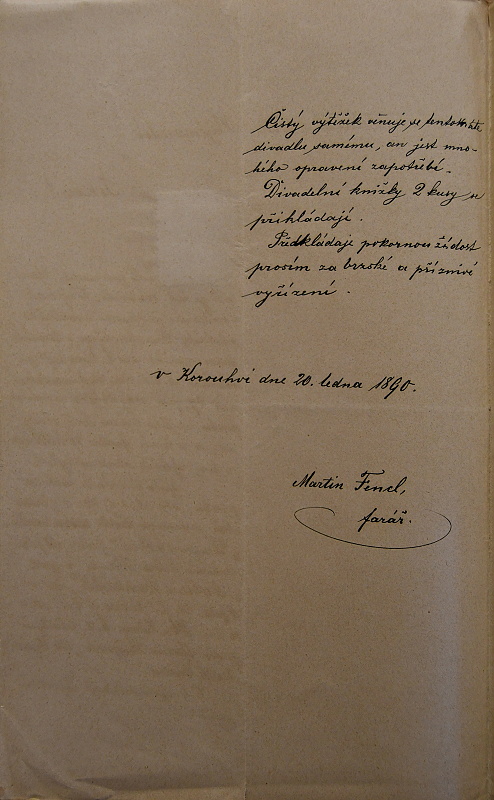 Čistý výtěžek věnuje se tentokráte
divadlu samému, an jest mno-
hého opravení zapotřebí.
Divadelní knížky 2 kusy se
přikládají.
Předkládaje pokornou žádost
prosím za brzské a příznivé
vyřízení.
v Korouhvi dne 20. ledna 1890.
Martin Fencl,
farář.